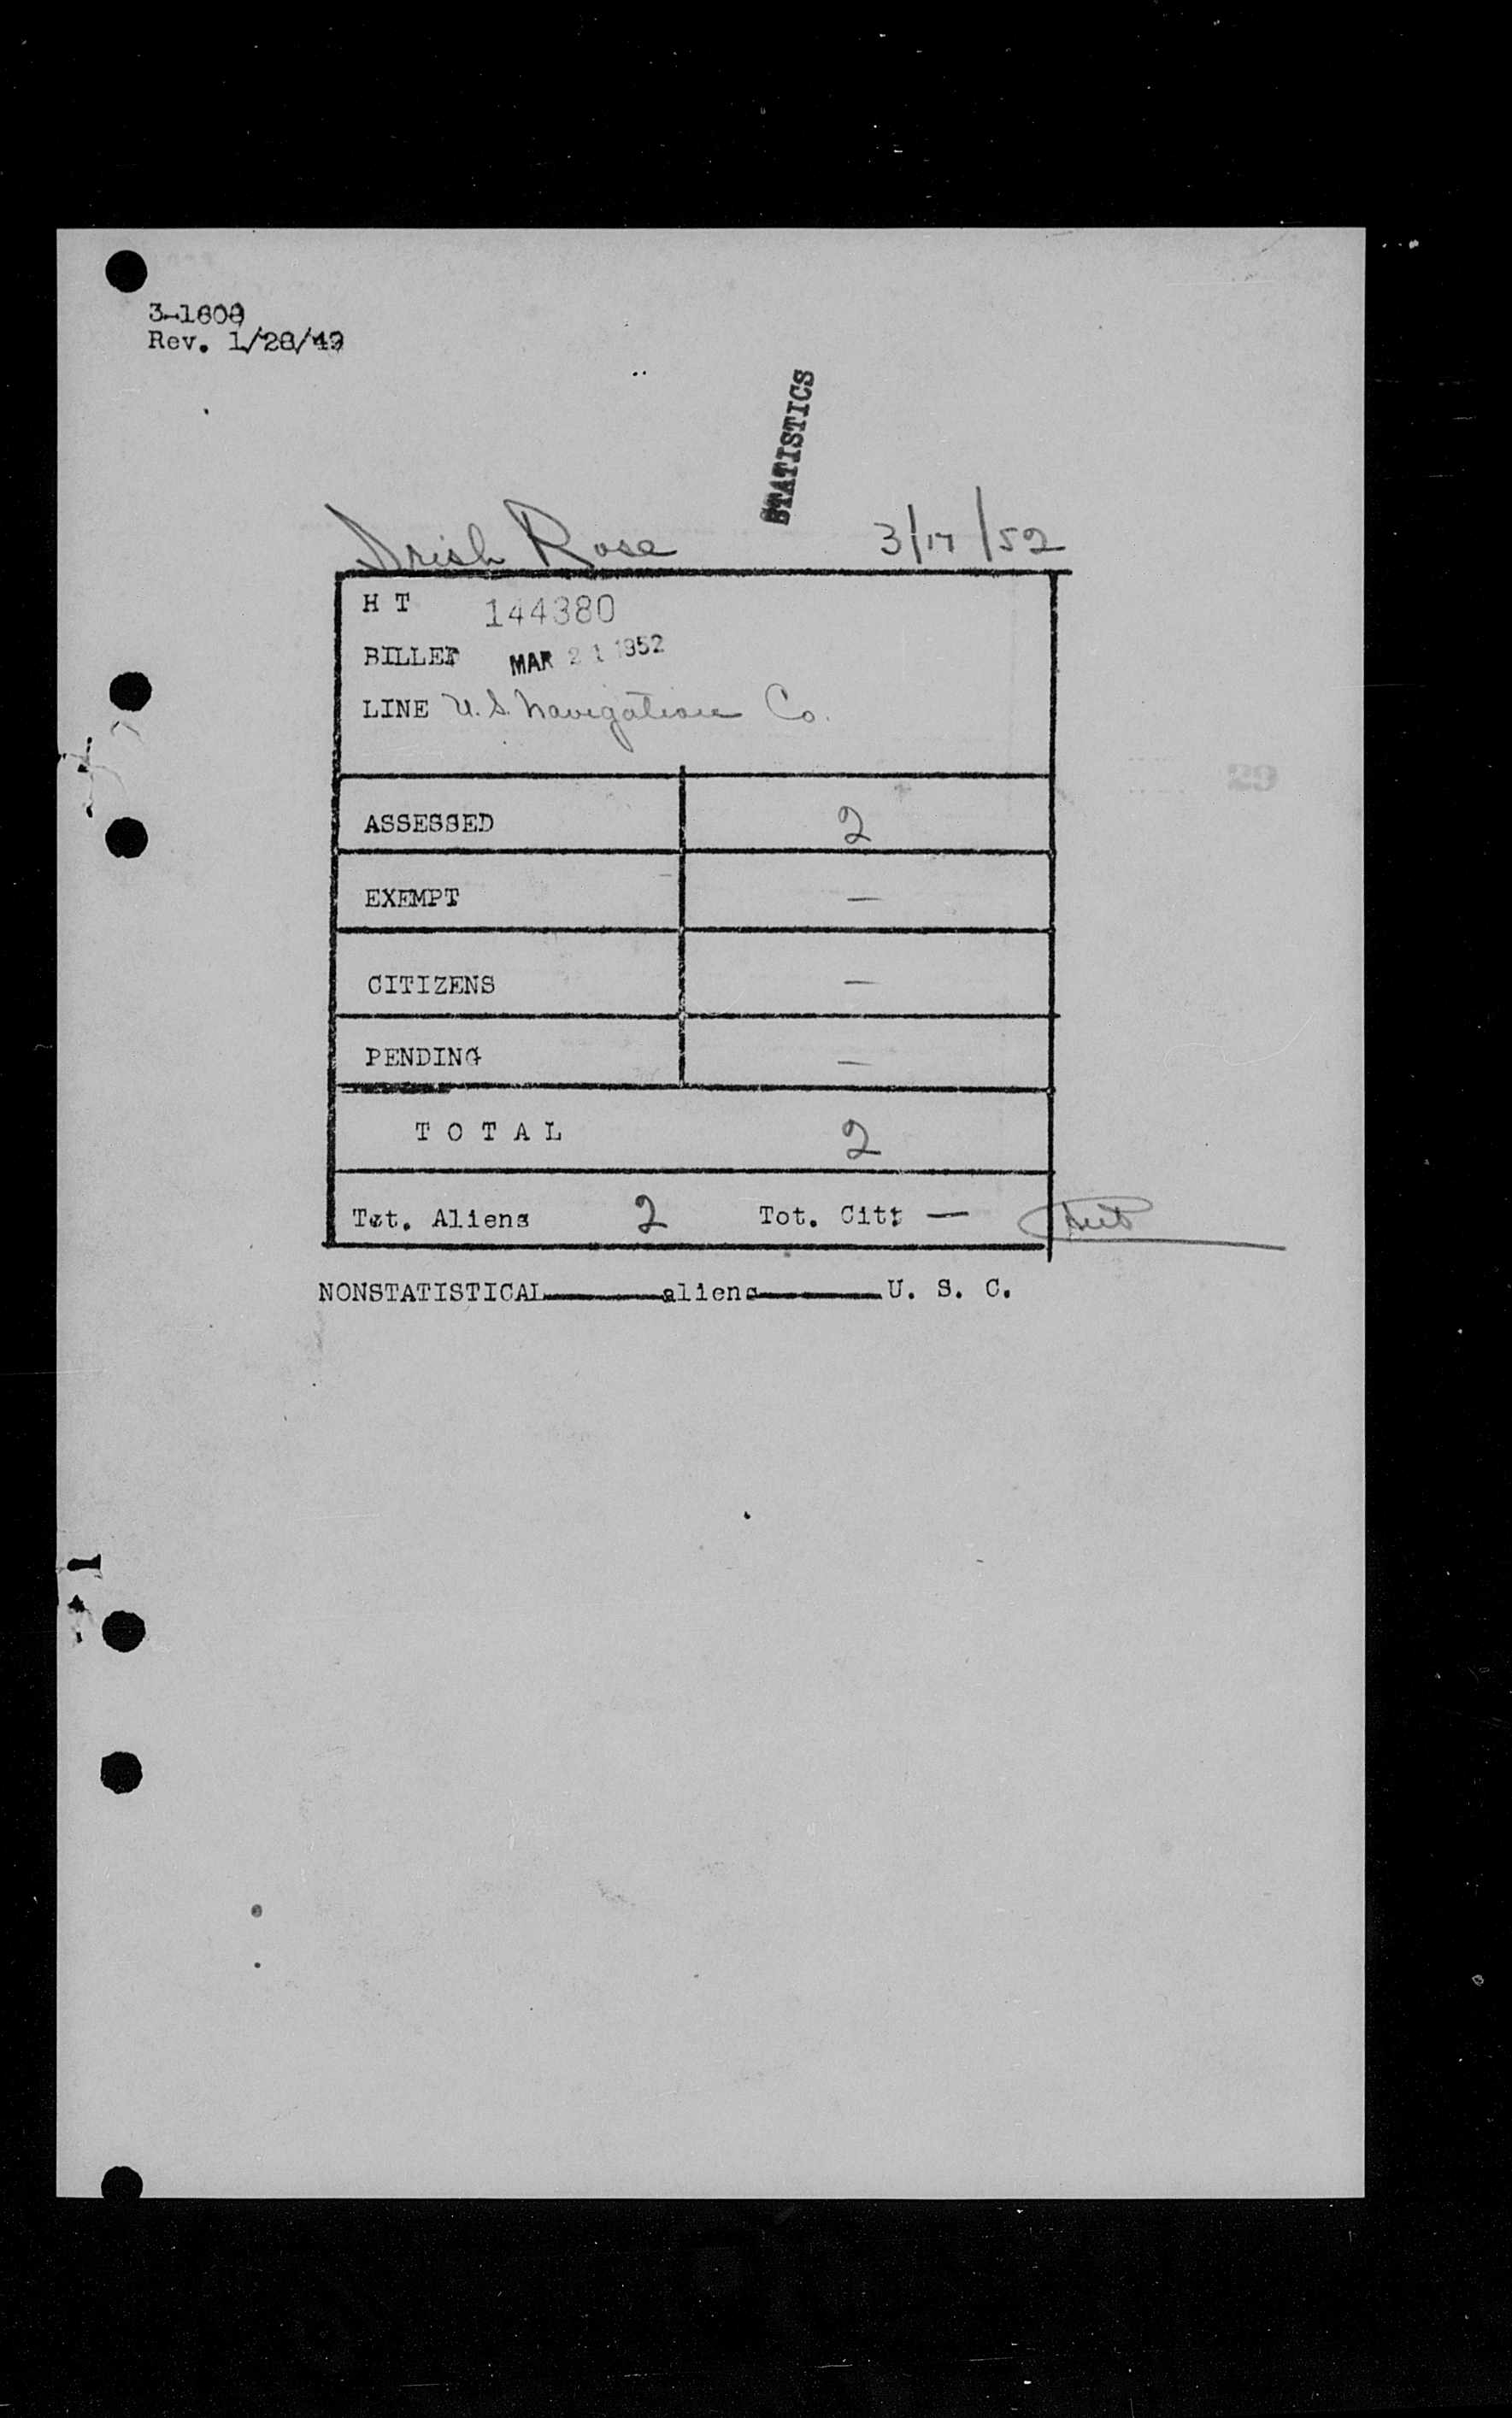 3-1608
Rev. 1/28/49
STATISTICS
Irish Rose 3/17/52
H T 144380
BILLED MAR 21 1952
LINE U.S. Navigation Co.
ASSESSED 2
EXEMPT —
CITIZENS —
PENDING —
T O T A L 2
Tot. Aliens 2 Tot. Cit: —
NONSTATISTICAL aliens U. S. C.